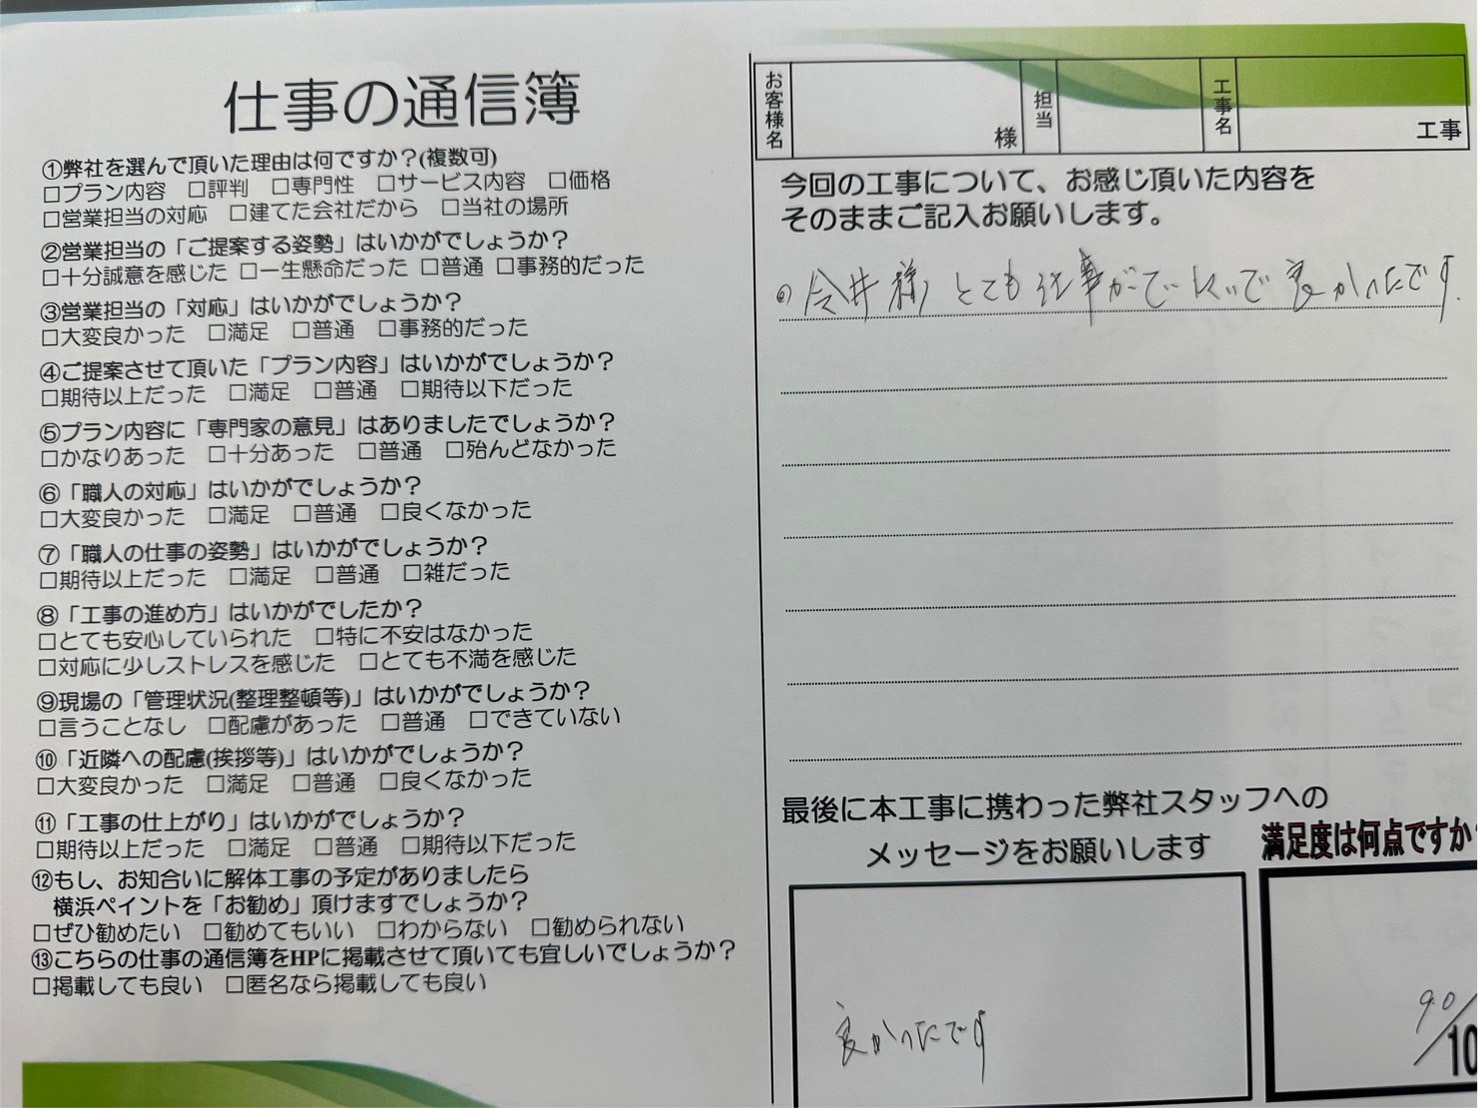 仕事の通信簿
①弊社を選んで頂いた理由は何ですか？(複数可)
□プラン内容 □評判 □専門性 □サービス内容 □価格
□営業担当の対応 □建てた会社だから □当社の場所
②営業担当の「ご提案する姿勢」はいかがでしょうか？
□十分誠意を感じた □一生懸命だった □普通 □事務的だった
③営業担当の「対応」はいかがでしょうか？
□大変良かった □満足 □普通 □事務的だった
④ご提案させて頂いた「プラン内容」はいかがでしょうか？
□期待以上だった □満足 □普通 □期待以下だった
⑤プラン内容に「専門家の意見」はありましたでしょうか？
□かなりあった □十分あった □普通 □殆んどなかった
⑥「職人の対応」はいかがでしょうか？
□大変良かった □満足 □普通 □良くなかった
⑦「職人の仕事の姿勢」はいかがでしょうか？
□期待以上だった □満足 □普通 □雑だった
⑧「工事の進め方」はいかがでしたか？
□とても安心していられた □特に不安はなかった
□対応に少しストレスを感じた □とても不満を感じた
⑨現場の「管理状況(整理整頓等)」はいかがでしょうか？
□言うことなし □配慮があった □普通 □できていない
⑩「近隣への配慮(挨拶等)」はいかがでしょうか？
□大変良かった □満足 □普通 □良くなかった
⑪「工事の仕上がり」はいかがでしょうか？
□期待以上だった □満足 □普通 □期待以下だった
⑫もし、お知合いに解体工事の予定がありましたら
横浜ペイントを「お勧め」頂けますでしょうか？
□ぜひ勧めたい □勧めてもいい □わからない □勧められない
⑬こちらの仕事の通信簿をHPに掲載させて頂いても宜しいでしょうか？
□掲載しても良い □匿名なら掲載しても良い
お客様名 様 担当 工事名 工事
今回の工事について、お感じ頂いた内容を
そのままご記入お願いします。
今井様 とても仕事がていねいで良かったです.
最後に本工事に携わった弊社スタッフへの
メッセージをお願いします
良かったです
満足度は何点ですか?
90/10